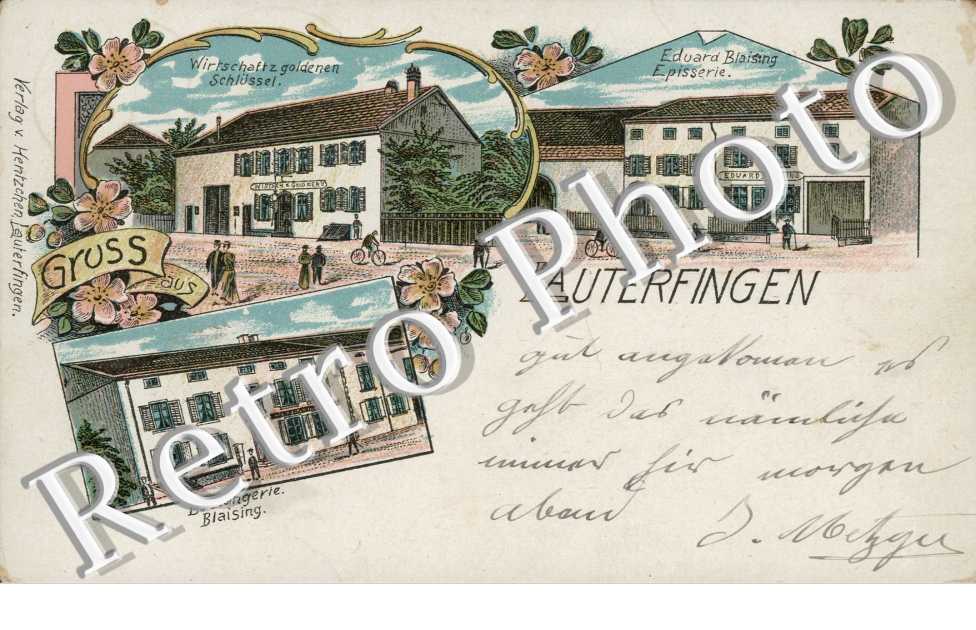 Wirtschaft z goldenen
Schlüssel.
Eduard Blaising
Episserie.
EDUARD
Verlag v. Hentzchen, Lauterfingen.
GRUSS
aus
LAUTERFINGEN
Blaising.
gut angekomen es
geht das nämliche
immer hir morgen
abend
J. Metzger
Retro Photo